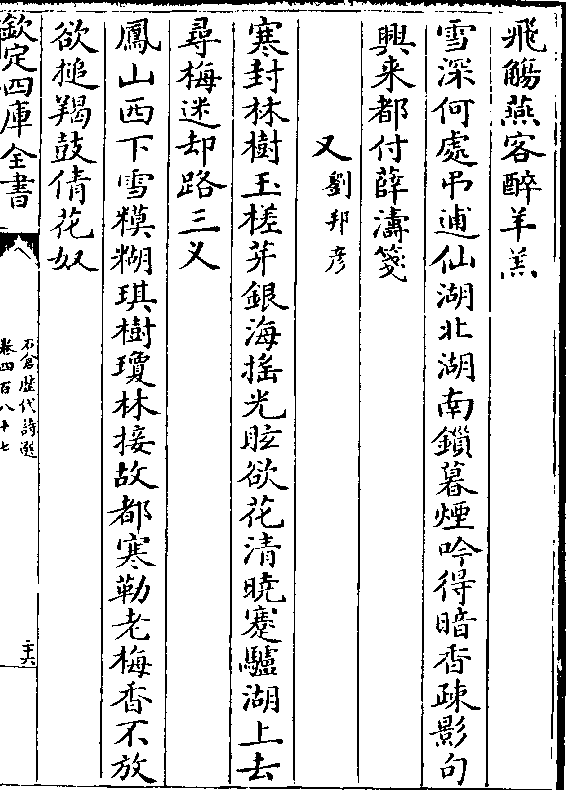 飛觴燕客醉羊羔
雪深何處弔逋仙湖北湖南鎖暮煙吟得暗香疎影句
興来都付薛濤箋
又劉邦彦
寒封林樹玉槎芽銀海揺光眩欲花清曉蹇驢湖上去
尋梅迷却路三义
鳳山西下雪糢糊琪樹瓊林接故都寒勒老梅香不放
欲搥羯鼓倩花奴
欽定四庫全書
石倉歴代詩選
卷四百八十七
二十六